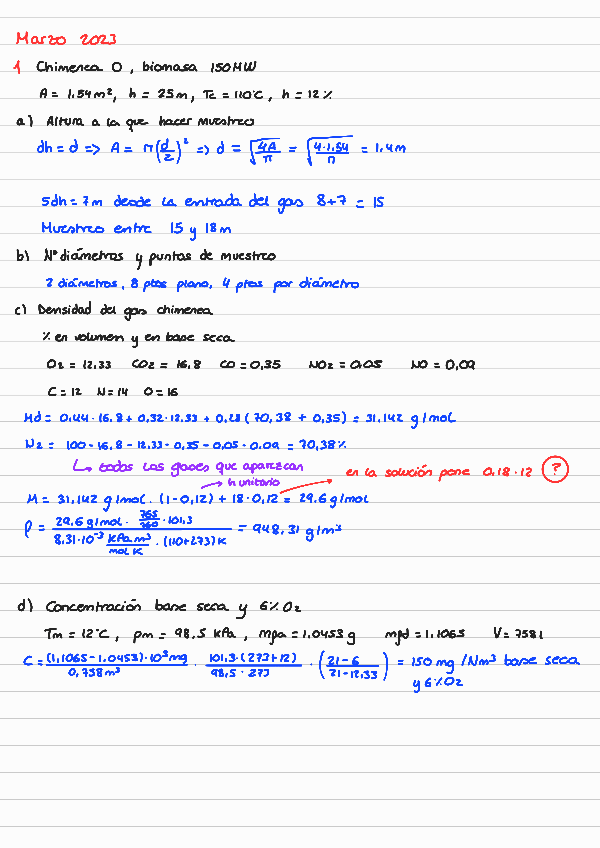 Marzo 2023
1 Chimenea O, biomasa 150MW
A = 1.54m², h = 25m, Tc = 110°C, h = 12%
a) Altura a la que hacer muestreo
dh = d => A = π(d/2)² => d = √(4A/π) = √(4·1.54/π) = 1.4m
5dh = 7m desde la entrada del gas 8+7 = 15
Muestreo entre 15 y 18m
b) Nº diámetros y puntos de muestreo
2 diámetros, 8 ptos plano, 4 ptos por diámetro
c) Densidad del gas chimenea
% en volumen y en base seca
O2 = 12,33 CO2 = 16,8 CO = 0,35 NO2 = 0.05 NO = 0,09
C = 12 N = 14 O = 16
Md = 0,44·16.8 + 0,32·12.33 + 0,28(70,38 + 0,35) = 31.142 g/mol
N2 = 100 - 16.8 - 12.33 - 0,35 - 0.05 - 0.09 = 70,38%
↳ todos los gases que aparezcan
en la solución pone 0,18·12 ?
→ h unitario
M = 31,142 g/mol · (1-0,12) + 18·0,12 = 29.6 g/mol
ρ = (29.6 g/mol · 765/760 · 101.3) / (8.31·10⁻³ kPa m³/mol K · (110+273)K) = 948,31 g/m³
d) Concentración base seca y 6% O2
Tm = 12°C, pm = 98,5 kPa, mpa = 1.0453 g mpd = 1.1065 V = 758 l
C = (1,1065 - 1.0453)·10³ mg / 0,758m³ · 101.3·(273+12) / 98,5·273 · (21-6 / 21-12,33) = 150 mg/Nm³ base seca
y 6% O2